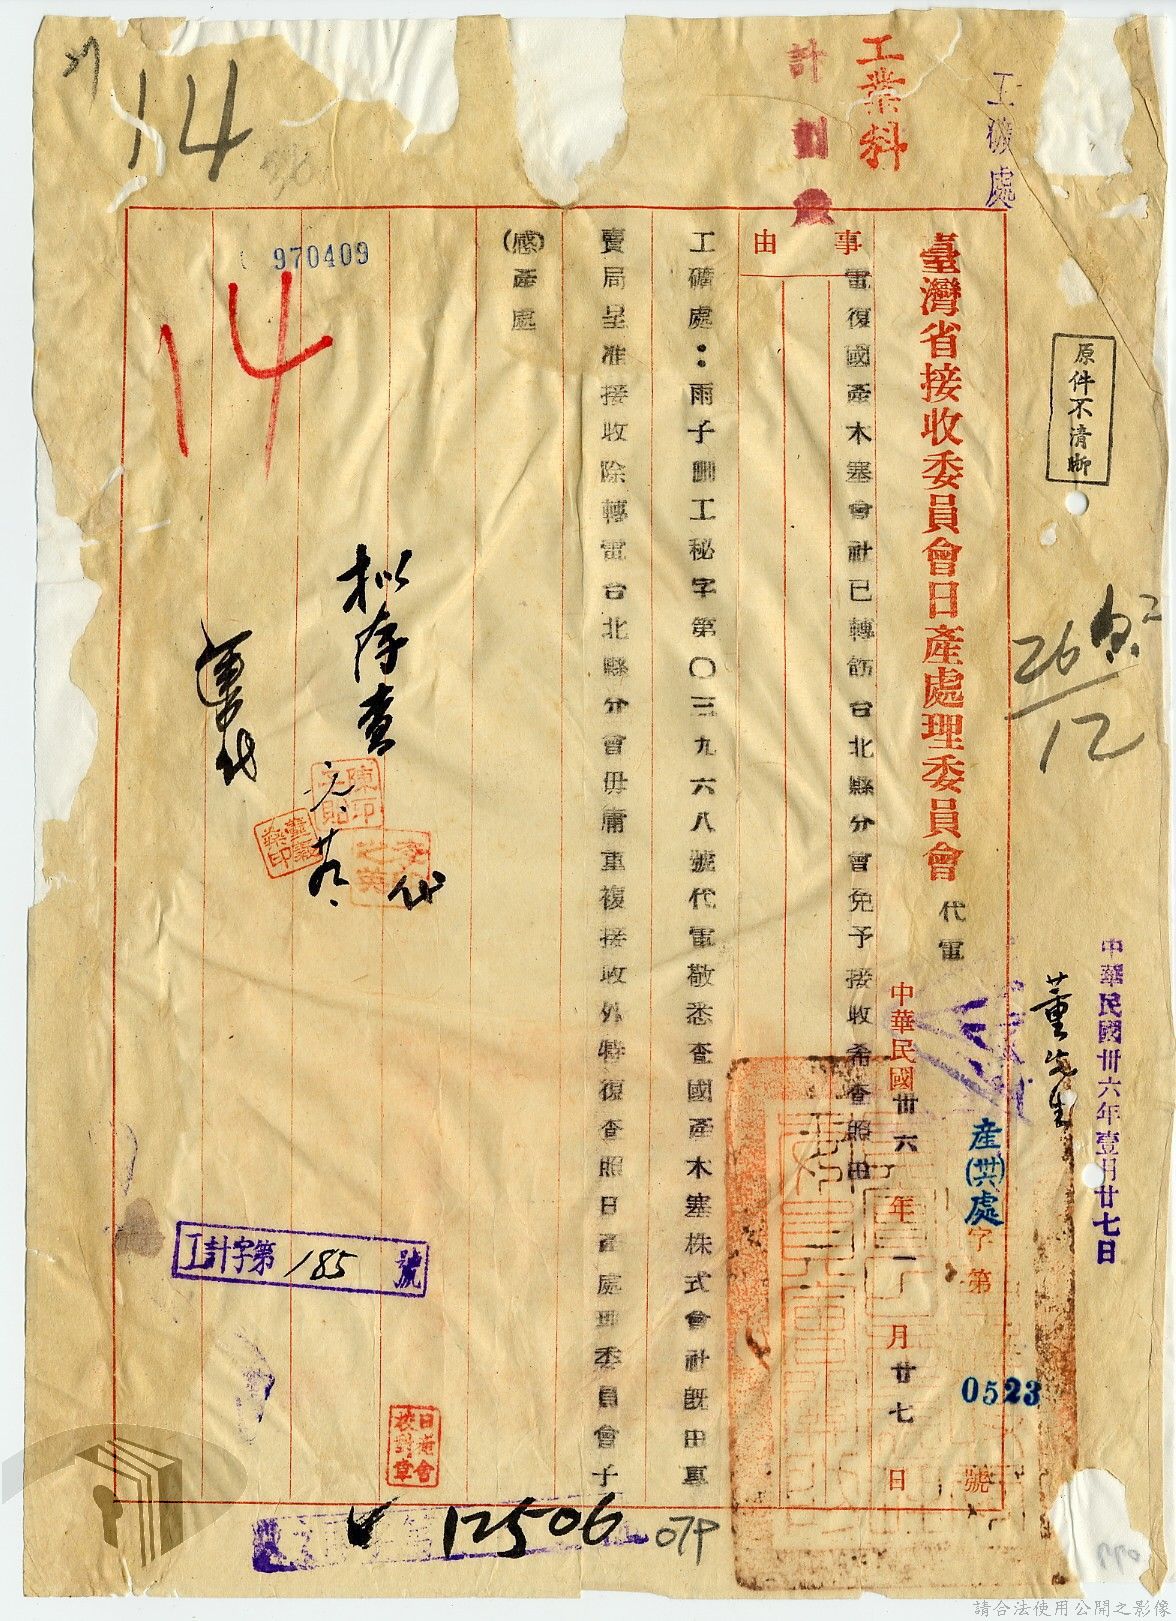 工礦處
工業科
計劃
14
原件不清晰
26/12
中華民國卅六年壹月廿七日
董先生
臺灣省接收委員會日產處理委員會
代電
產(卅)處字第0523號
中華民國卅六年一月廿七日
事由
電復國產木塞會社已轉飭台北縣分會免予接收希查照由
工礦處：雨子刪工秘字第〇三九六八號代電敬悉查國產木塞株式會社既由專
賣局呈准接收除轉電台北縣分會毋庸重複接收外特復查照日產處理委員會子
(感)產處
擬存查
代
970409
14
工計字第185號
日產會校對章
12506
079
請合法使用公開之影像